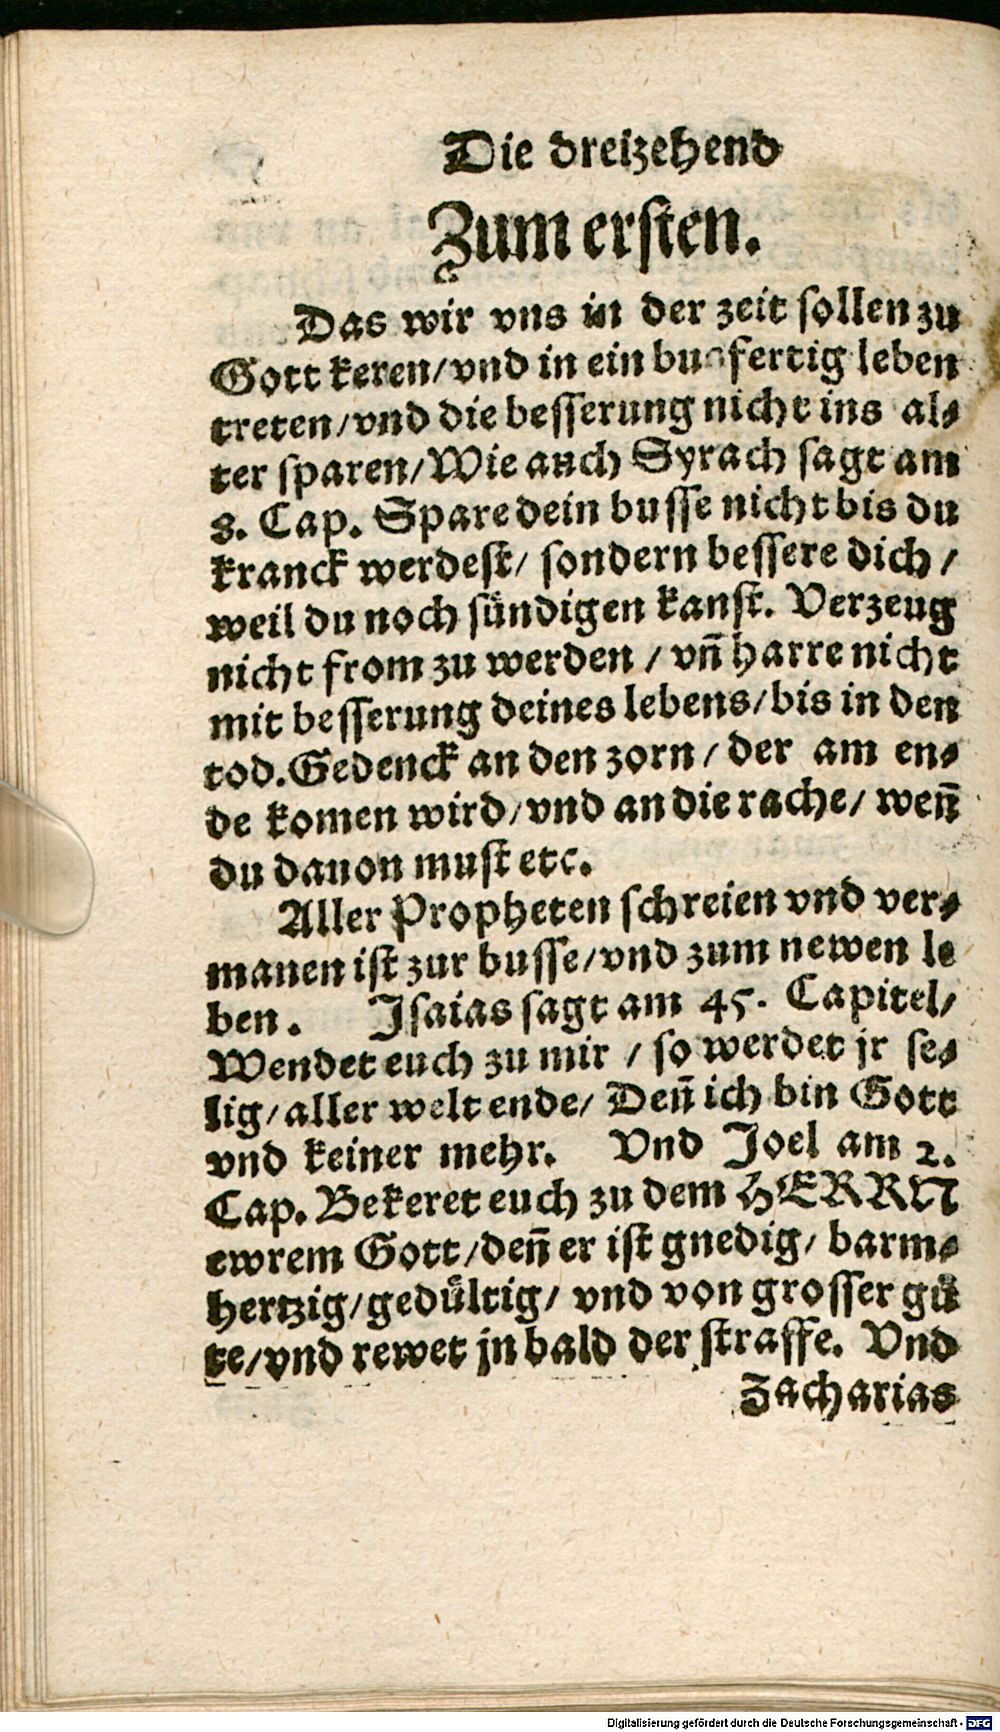 Die dreizehend
Zum ersten.
Das wir vns in der zeit sollen zu
Gott keren/vnd in ein busfertig leben
treten/vnd die besserung nicht ins al⸗
ter sparen/Wie auch Syrach sagt am
8. Cap. Spare dein busse nicht bis du
kranck werdest/ sondern bessere dich/
weil du noch sündigen kanst. Verzeug
nicht from zu werden / vn̄ harre nicht
mit besserung deines lebens/bis in den
tod. Gedenck an den zorn/ der am en⸗
de komen wird/vnd an die rache/ wen̄
du dauon must etc.
Aller Propheten schreien vnd ver⸗
manen ist zur busse/vnd zum newen le
ben. Isaias sagt am 45. Capitel/
Wendet euch zu mir / so werdet jr se⸗
lig/aller welt ende/ Den̄ ich bin Gott
vnd keiner mehr. Vnd Joel am 2.
Cap. Bekeret euch zu dem HERRN
ewrem Gott/den̄ er ist gnedig/ barm⸗
hertzig/gedültig/ vnd von grosser gü
te/vnd rewet jn bald der straffe. Vnd
Zacharias
Digitalisierung gefördert durch die Deutsche Forschungsgemeinschaft - DFG